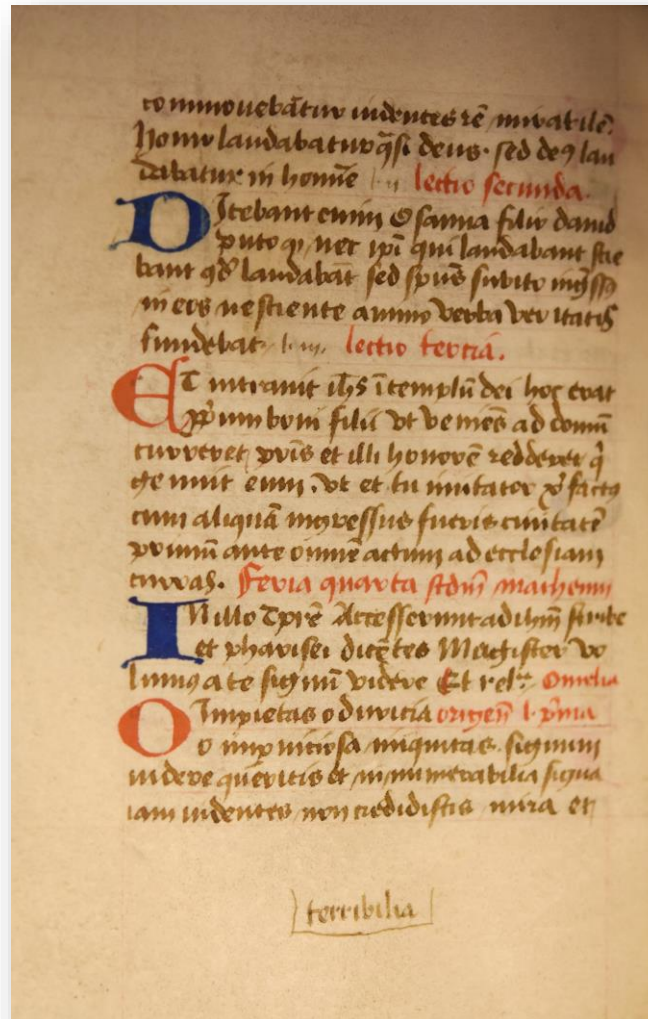 commouebātur uidentes rē mirabilē
homo laudabatur q̄si deus. sed deꝰ lau
dabatur in homīe lectio secunda.
Dicebant enim Osanna filio dauid
puto qꝫ nec ipī qui laudabant scie
bant qd̄ laudabāt sed spūs subito ingˢsꝰ
in eos nesciente animo verba veritatis
fundebat. lectio tercia.
Et intrauit ihs̄ ī templū dei hoc erat
ꝓprium boni filii vt veniēs ad domū
curreret pr̄is et illi honorē redderet q̄
genuit eum. vt et tu imitator xp̄i factꝰ
cum aliquā ingressus fueris ciuitatē
primū ante omnē actum ad ecclesiam
curras. Feria quarta scdm̄ matheum
In illo tp̄re Accesserunt ad ihm̄ scribe
et pharisei dicētes Magister vo
lumꝰ a te signū videre Et relꝰ Omelia
O Impietas o duricia origen̄ l. p̄ma
o impiniosa iniquitas. signum
uidere queritis et innumerabilia signa
iam uidentes non credidistis mira et
terribilia